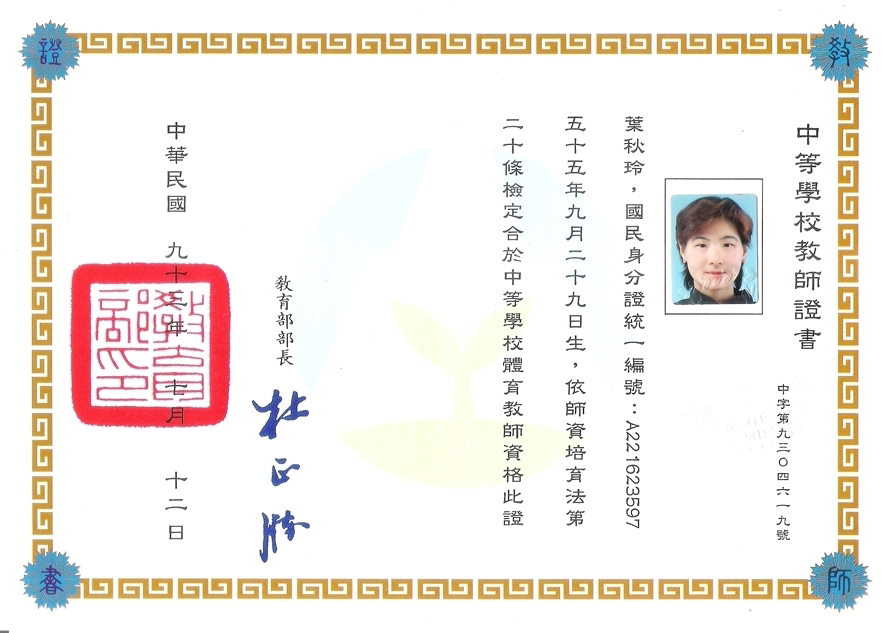 教
師
證
書
中等學校教師證書
中字第九三０四六一九號
葉秋玲，國民身分證統一編號：A221623597
五十五年九月二十九日生，依師資培育法第
二十條檢定合於中等學校體育教師資格此證
教育部部長
杜正勝
中華民國 九十三年 七月 十二日